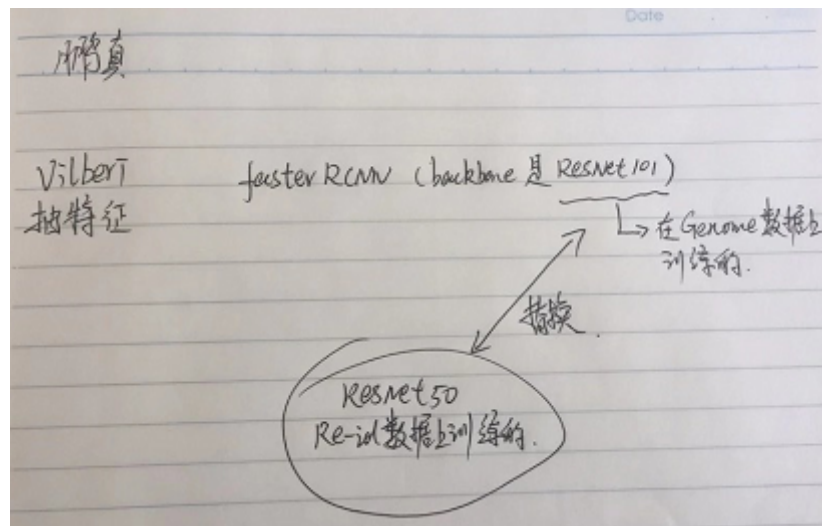 Date
Vilbert
抽特征
faster RCNN (backbone 是 ResNet 101)
在Genome数据上
训练的.
替换.
ResNet 50
Re-id数据上训练的.